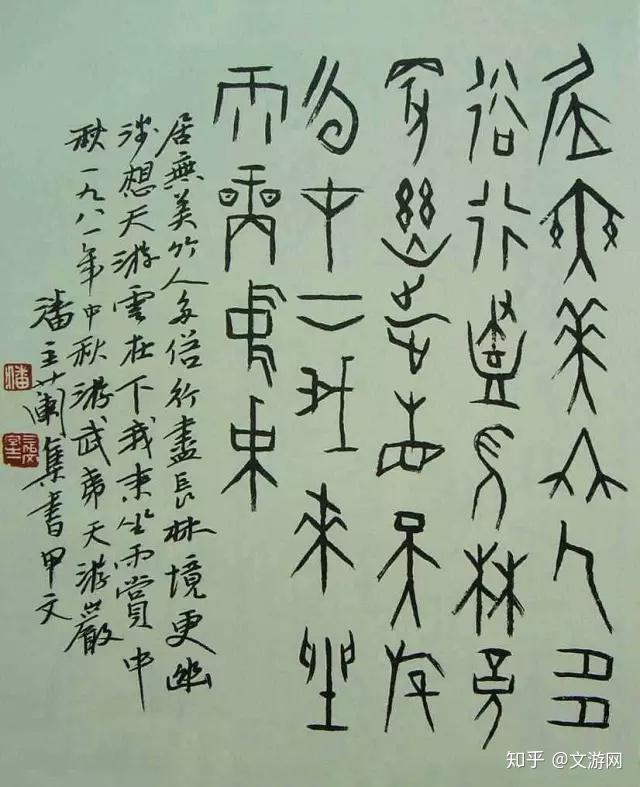 居無美竹人多
俗行盡長林境
更幽涉想天游
雲在下我来坐
雨賞中秋
居無美竹人多俗行盡長林境更幽
涉想天游雲在下我来坐雨賞中
秋一九八一年中秋游武夷天游巖
潘主蘭集書甲文
潘
知乎 @文游网